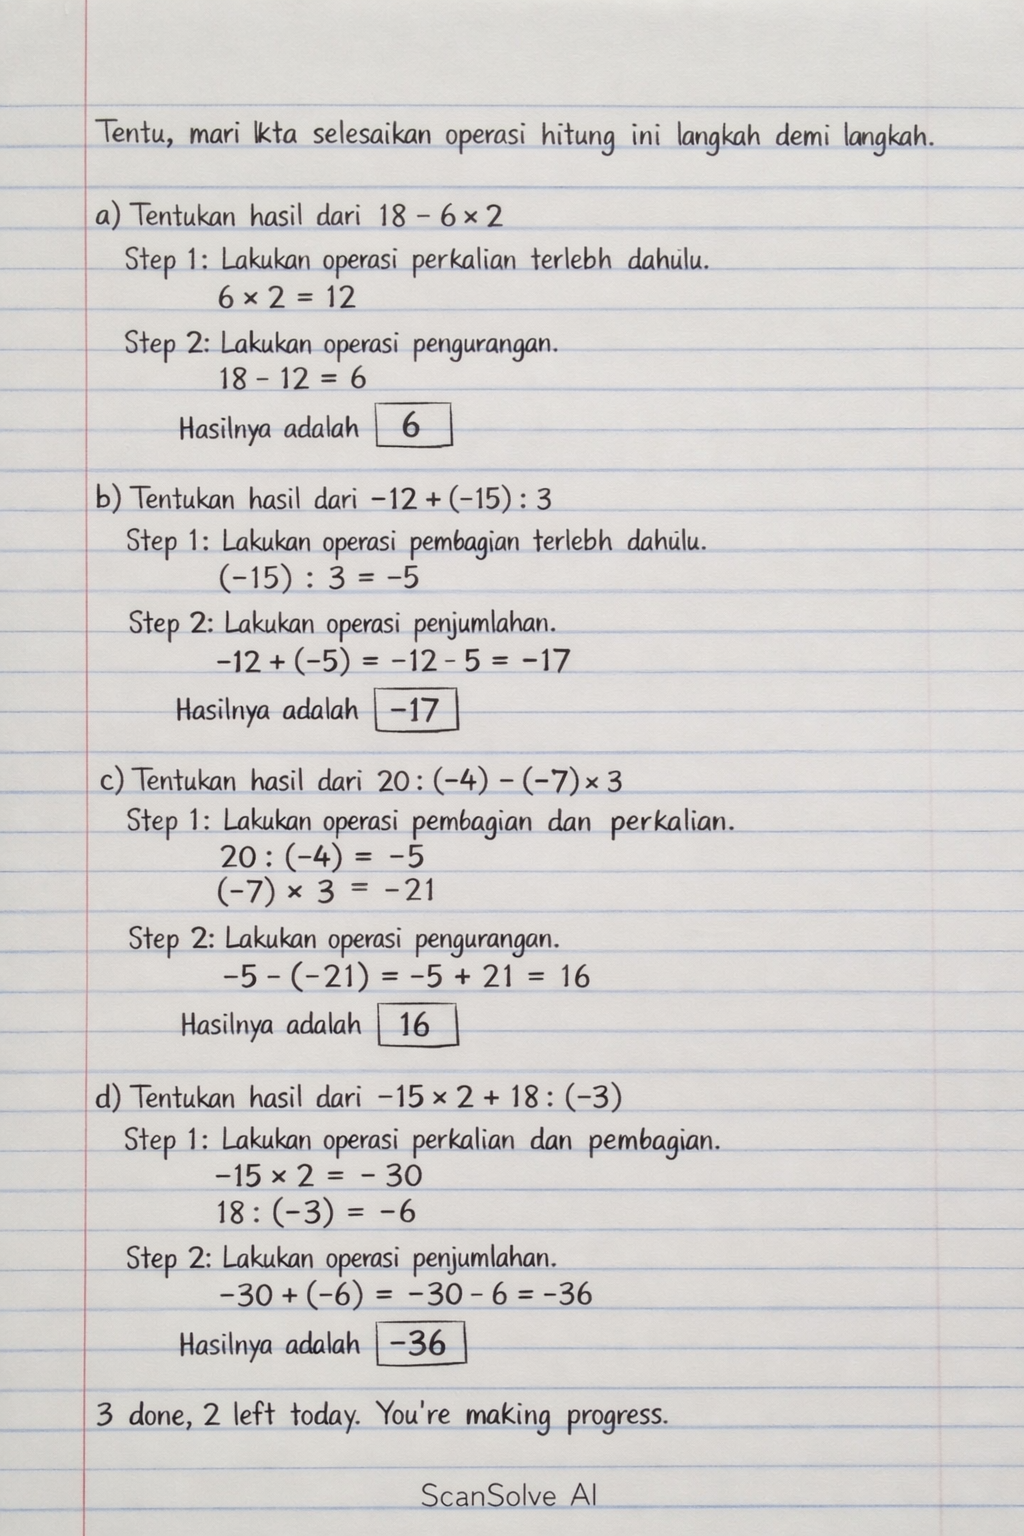 Tentu, mari lkta selesaikan operasi hitung ini langkah demi langkah.
a) Tentukan hasil dari 18 - 6 × 2
Step 1: Lakukan operasi perkalian terlebh dahulu.
6 × 2 = 12
Step 2: Lakukan operasi pengurangan.
18 - 12 = 6
Hasilnya adalah 6
b) Tentukan hasil dari -12 + (-15) : 3
Step 1: Lakukan operasi pembagian terlebh dahulu.
(-15) : 3 = -5
Step 2: Lakukan operasi penjumlahan.
-12 + (-5) = -12 - 5 = -17
Hasilnya adalah -17
c) Tentukan hasil dari 20 : (-4) - (-7) × 3
Step 1: Lakukan operasi pembagian dan perkalian.
20 : (-4) = -5
(-7) × 3 = -21
Step 2: Lakukan operasi pengurangan.
-5 - (-21) = -5 + 21 = 16
Hasilnya adalah 16
d) Tentukan hasil dari -15 × 2 + 18 : (-3)
Step 1: Lakukan operasi perkalian dan pembagian.
-15 × 2 = - 30
18 : (-3) = -6
Step 2: Lakukan operasi penjumlahan.
-30 + (-6) = -30 - 6 = -36
Hasilnya adalah -36
3 done, 2 left today. You're making progress.
ScanSolve AI